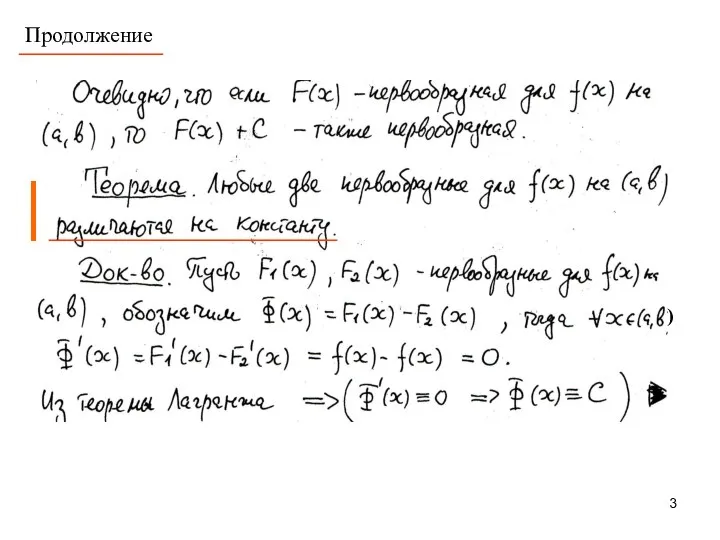 Продолжение
Очевидно, что если F(x) – первообразная для f(x) на
(a, b), то F(x) + C – также первообразная.
Теорема. Любые две первообразные для f(x) на (a, b)
различаются на константу.
Док-во. Пусть F₁(x), F₂(x) – первообразные для f(x) на
(a, b), обозначим Φ(x) = F₁(x) – F₂(x), тогда ∀x∈(a, b)
Φ'(x) = F₁'(x) – F₂'(x) = f(x) – f(x) = 0.
Из теоремы Лагранжа => (Φ'(x) ≡ 0 => Φ(x) ≡ C)
3